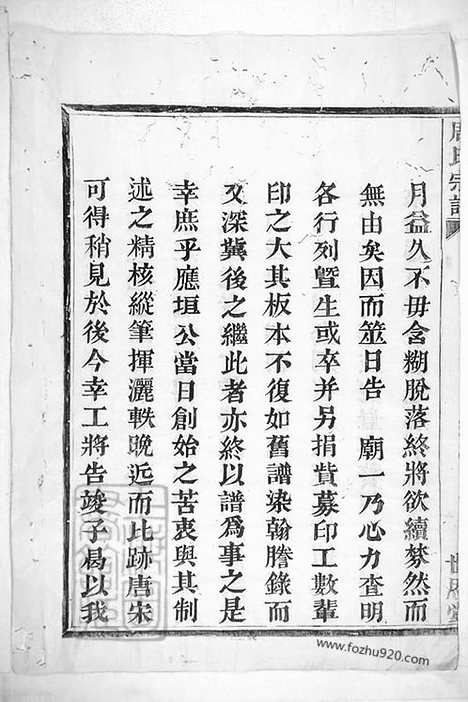 周氏宗譜
月益久不毋含糊脫落終將欲續棼然而
無由矣因而筮日告　廟一乃心力查明
各行列暨生或卒并另捐貲募印工數輩
印之大其板本不復如舊譜染翰謄錄而
又深冀後之繼此者亦終以譜爲事之是
幸庶乎應垣公當日創始之苦衷與其制
述之精核縱筆揮灑軼晚近而比跡唐宋
可得稍見於後今幸工將告竣子曷以我
www.fozhu920.com